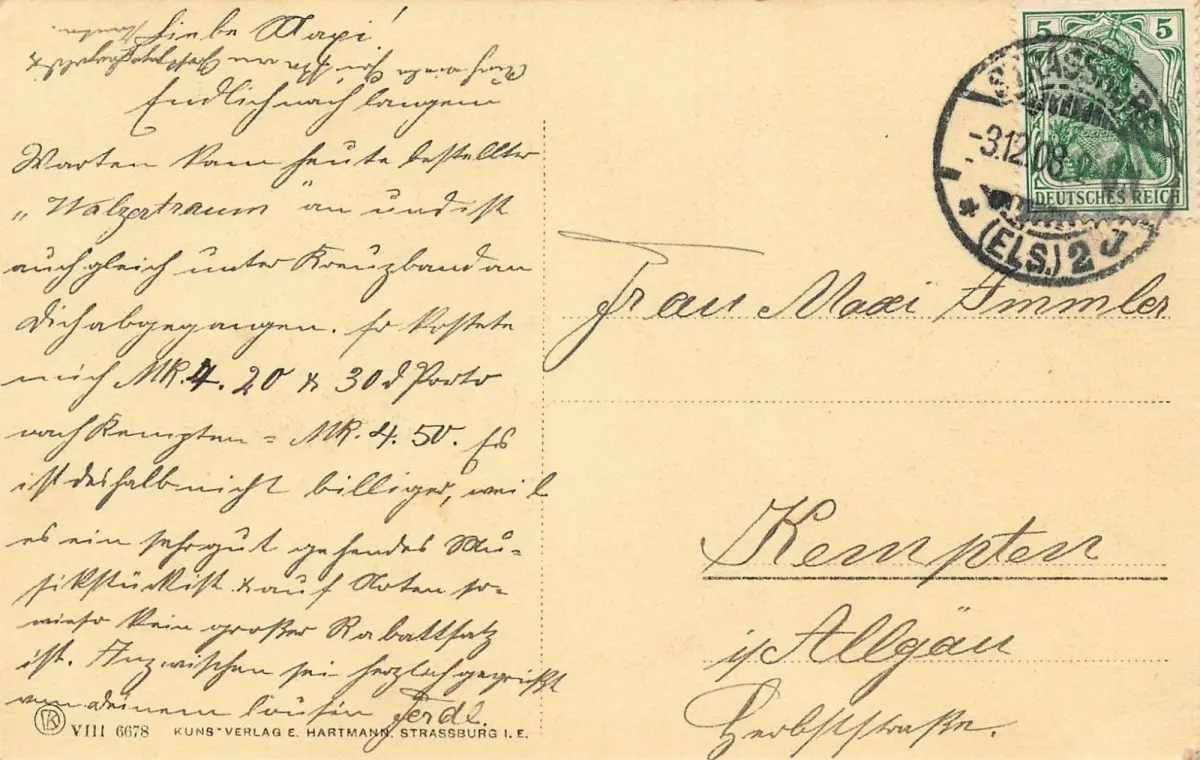 Liebe Maxi!
Endlich nach langem
Warten kam heute bestellter
„Walzertraum" an und ist
auch gleich unter Kreuzband an
Dich abgegangen. Er kostete
mich MK. 4.20 & 30 d Porto
nach Kempten = MK. 4.50. Es
ist deshalb nicht billiger, weil
es ein sehr gut gehendes Mu-
sikstück ist & auf Noten so-
wieso kein großer Rabattsatz
ist. Inzwischen sei herzlich gegrüßt
von deinem Ferdl.
VIII 6678 KUNSTVERLAG E. HARTMANN, STRASSBURG I. E.
5 5
DEUTSCHES REICH
STRASSBURG
-3.12.08.
* (ELS.) 2 J
Frau Maxi Immler
Kempten
i/ Allgäu
Herbststraße.